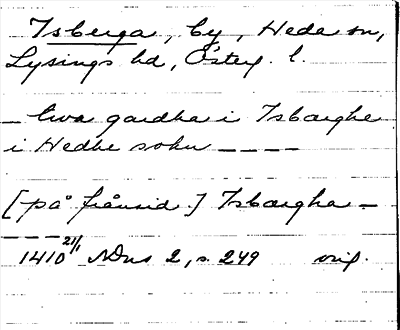 Isberga, by, Heda sn,
Lysings hd, Österg. l.
_ twa gardha i Isbærghe
i Hedhe sokn _ _ _ _
[på frånsid.] Isbærgha _
_ _ _
1410 21/1 SDns 2, s. 249 orig.